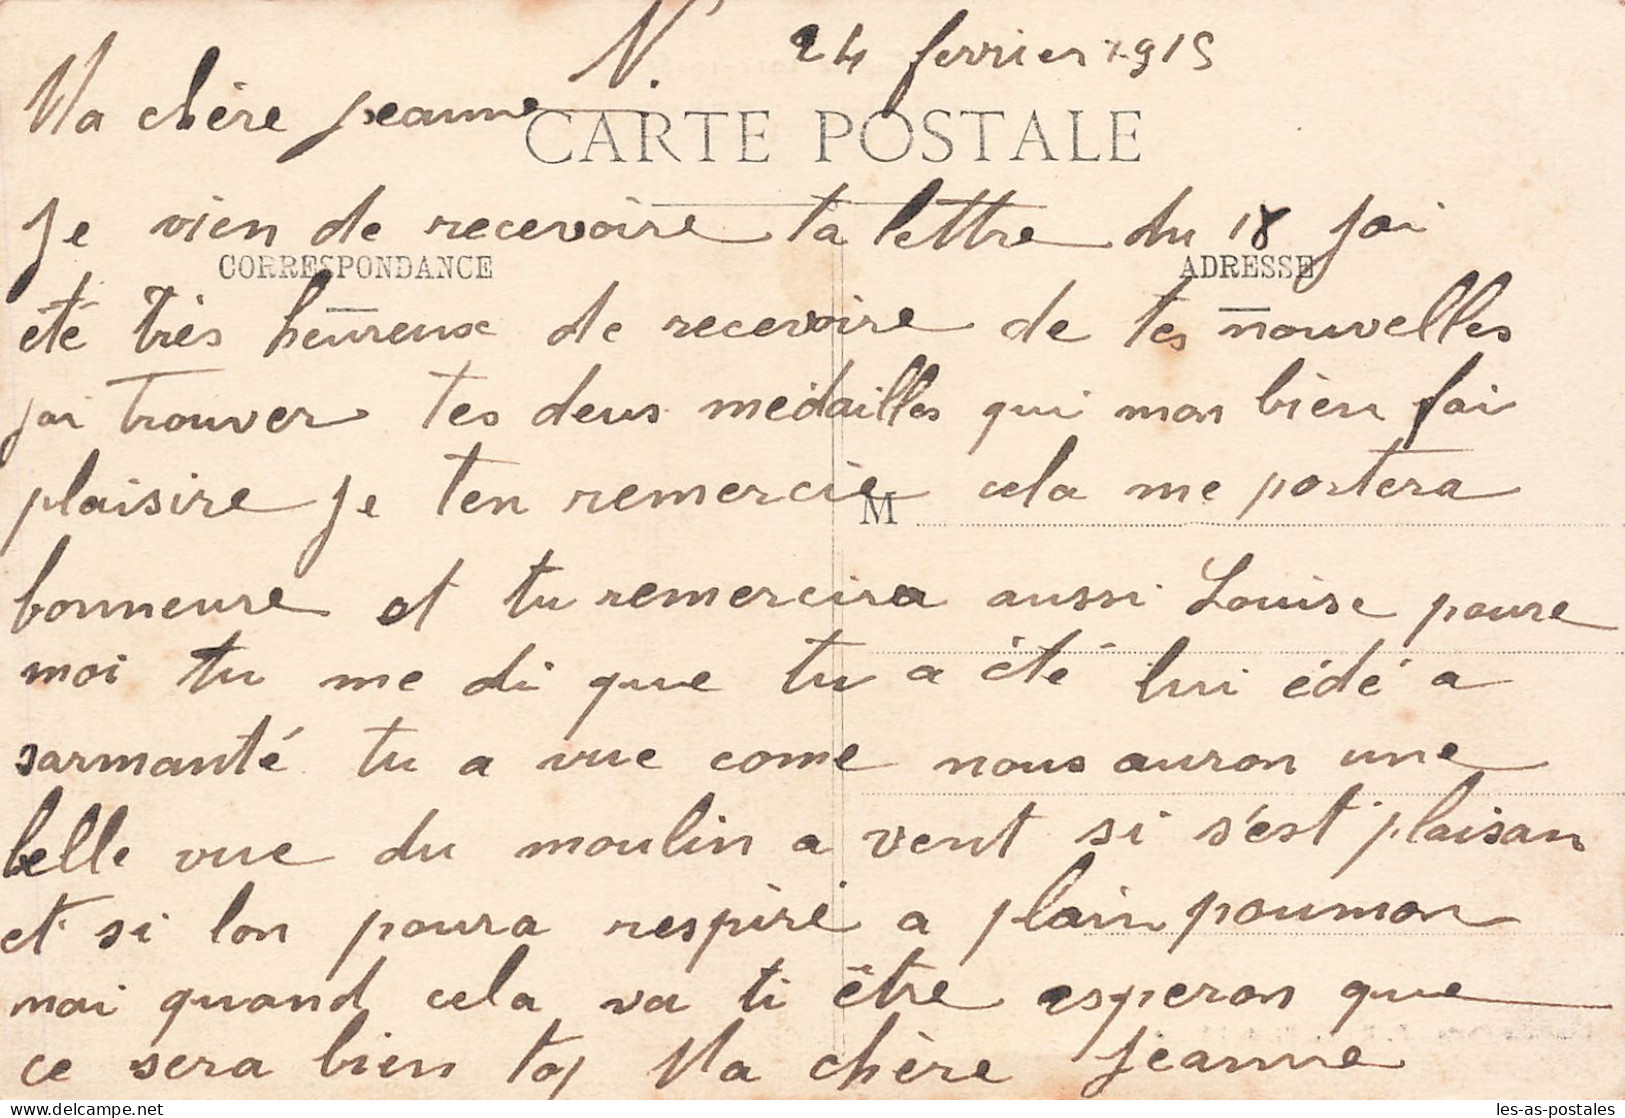 N. 24 fevrier 1915
Ma chère Jeanne
CARTE POSTALE
Je vien de recevoire ta lettre du 18 jai
CORRESPONDANCE ADRESSE
eté très heureux de recevoire de tes nouvelles
jai trouver tes deus medailles qui mon bien fai
plaisire je ten remercie cela me portera
M
bonneure et tu remercira aussi Louise poure
moi tu me di que tu a été lui édé a
sarmanté tu a vue come nous auron une
belle vue du moulin a vent si s'est plaisan
et si lon poura respiré a plain poumon
mai quand cela va ti être esperon que
ce sera bien to Ma chère Jeanne
les-as-postales